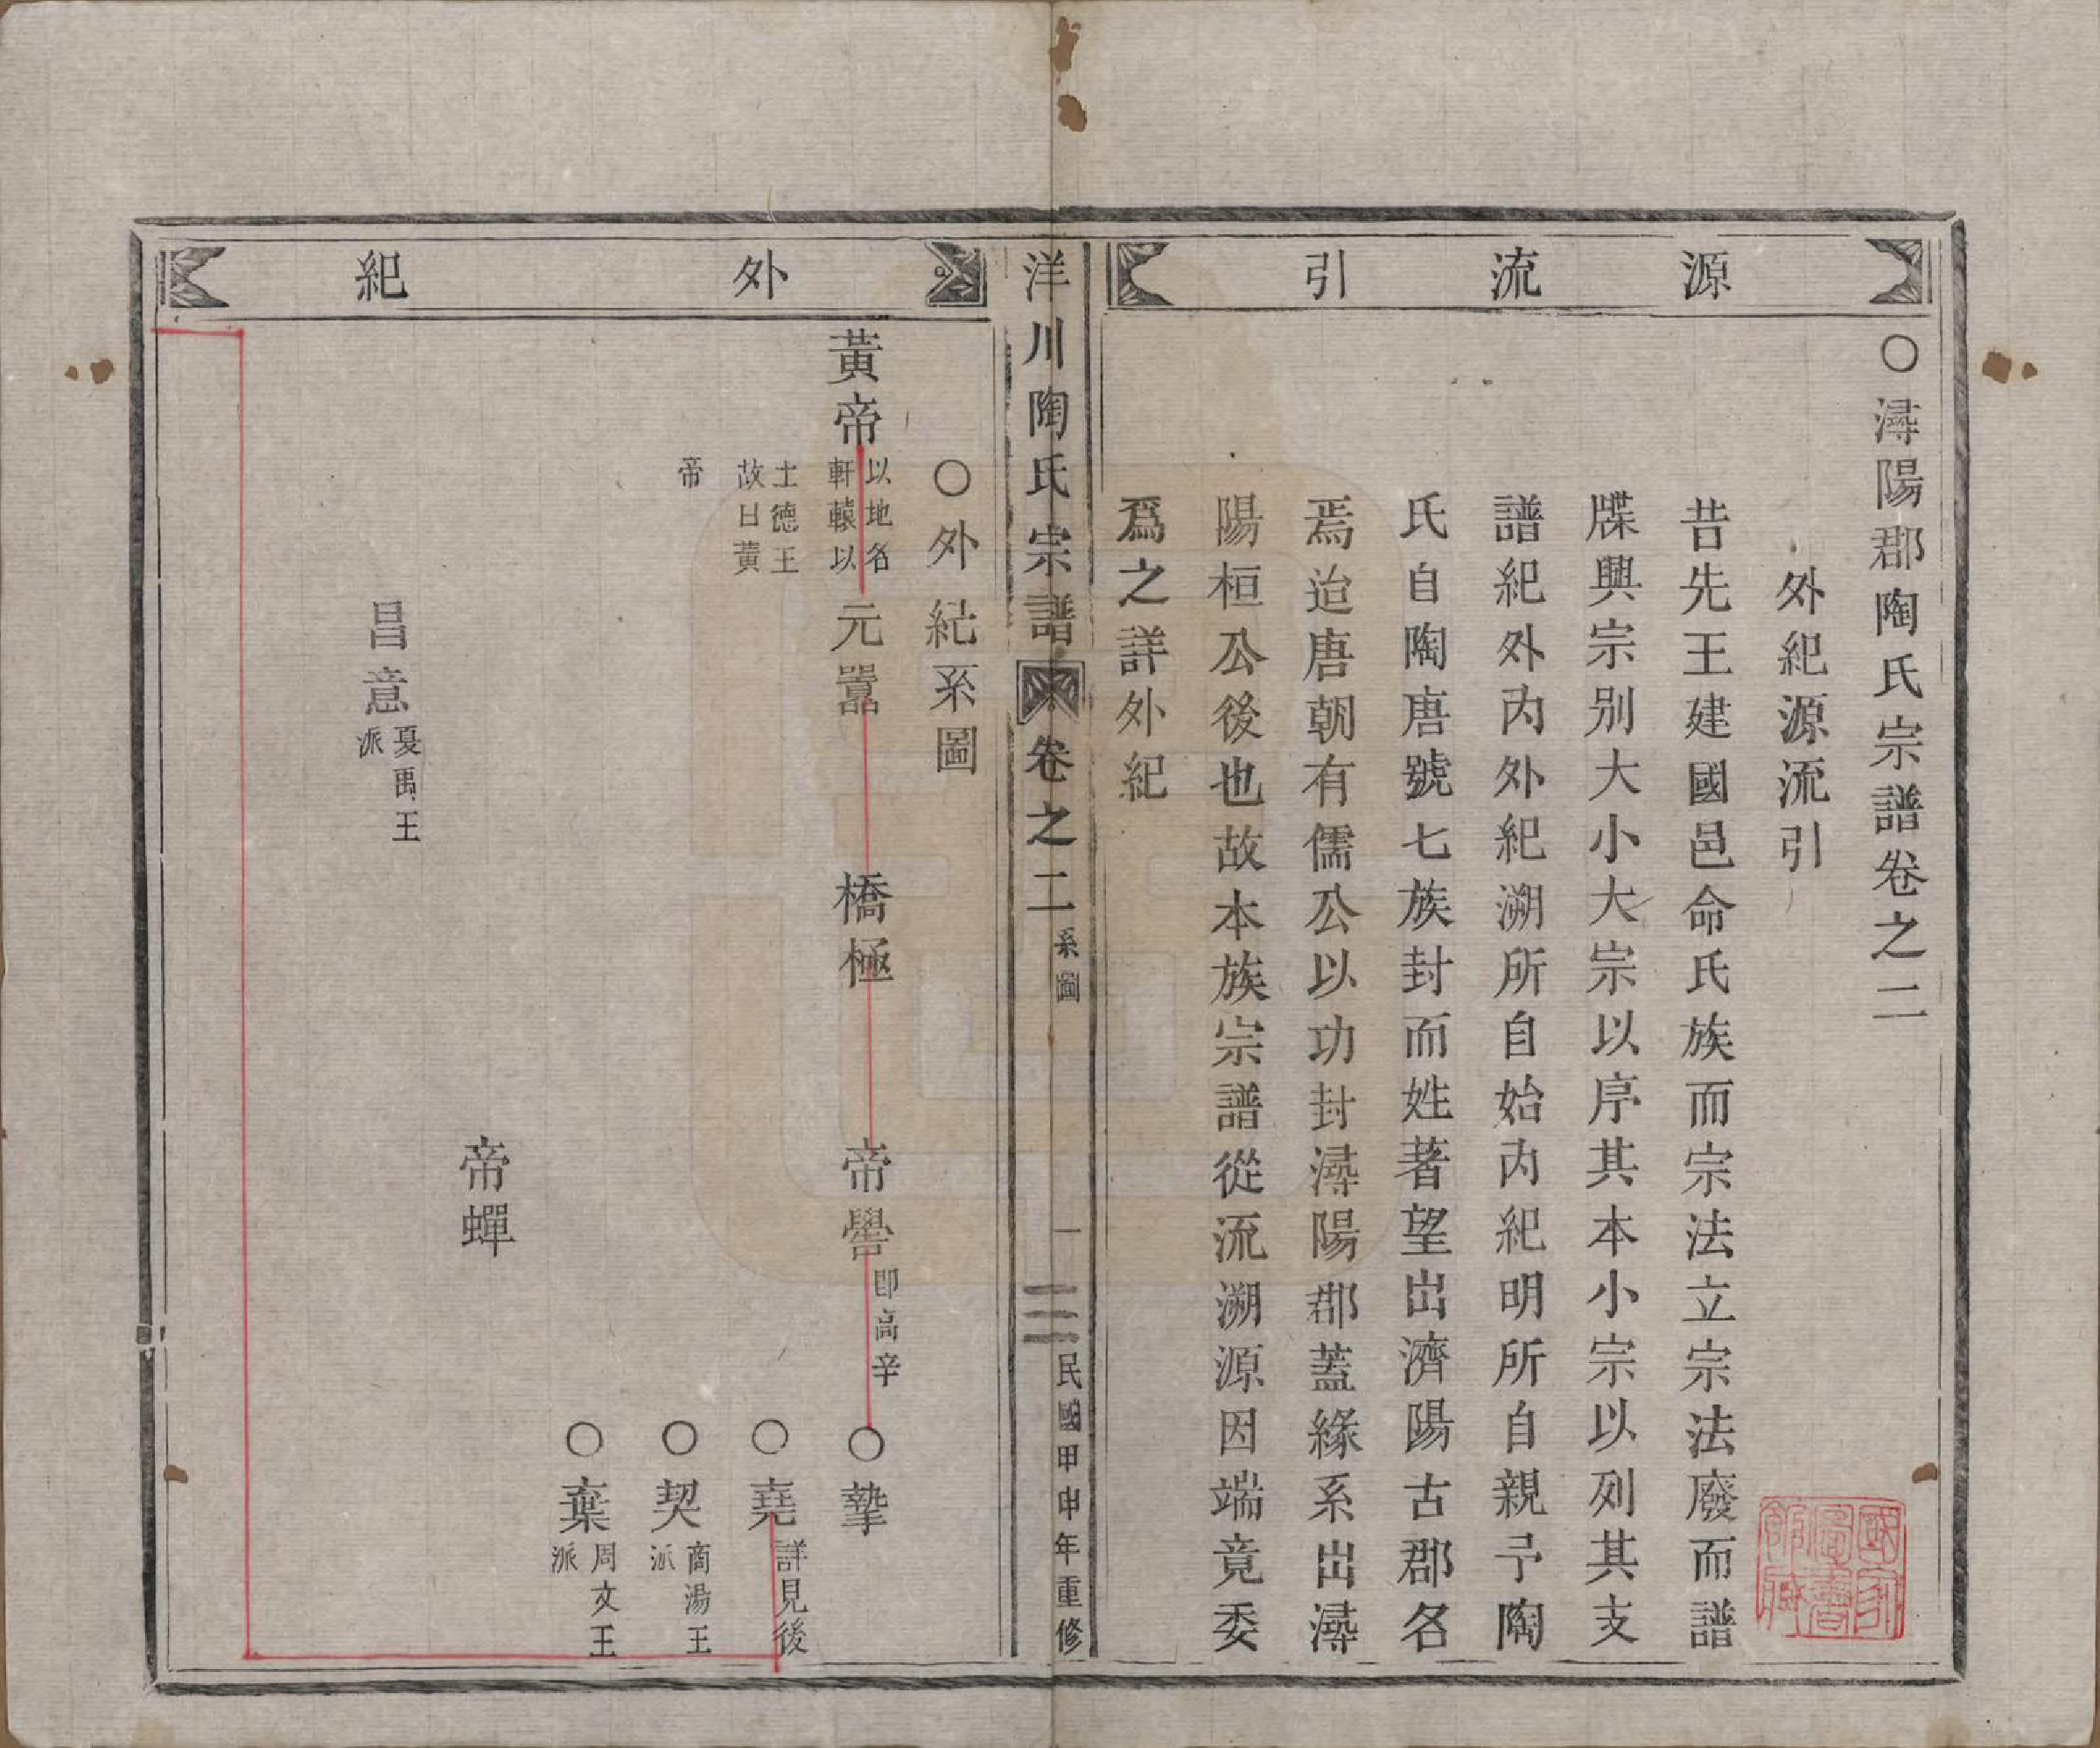 源流引
○潯陽郡陶氏宗譜卷之二
外紀源流引
昔先王建國邑命氏族而宗法立宗法廢而譜
牒興宗别大小大宗以序其本小宗以列其支
譜紀外內外紀溯所自始內紀明所自親予陶
氏自陶唐號七族封而姓著望出濟陽古郡名
焉迨唐朝有儒公以功封潯陽郡蓋緣系出潯
陽桓公後也故本族宗譜從流溯源因端竟委
爲之詳外紀
國家圖書館藏
洋川陶氏宗譜 卷之二 系圖 一 民國甲申年重修
外紀
○外紀系圖
黃帝 以地名軒轅以土德王故曰黃帝
元囂
橋極
帝嚳 即高辛
○摯
○堯 詳見後
○契 商湯王派
○棄 周文王派
帝蟬
昌意 夏禹王派